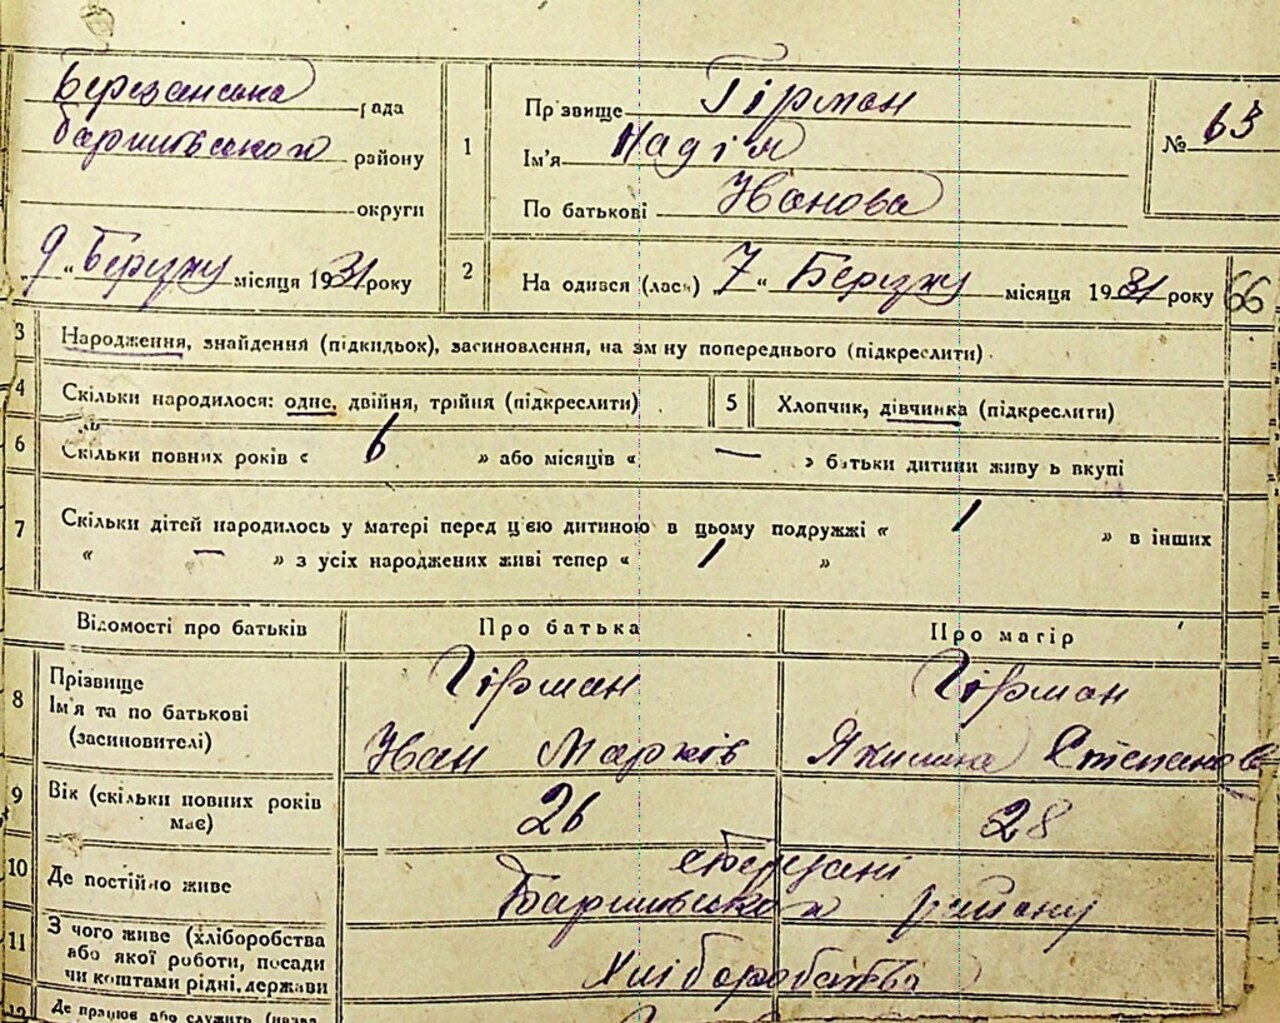 Березанська рада
Баришівського району
округи
„ 9 “ Березня місяця 1931 року
1
Прізвище Гірман
Ім'я Надія
По батькові Іванова
№ 63
2
На одився (лась) 7 “ Березня місяця 1931 року
66
3 Народження, знайдення (підкидьок), засиновлення, на зм ну попереднього (підкреслити).
4 Скільки народилося: одне, двійня, трійня (підкреслити)
5 Хлопчик, дівчинка (підкреслити)
6 Скільки повних років « 6 » або місяців « — » батьки дитини живу ь вкупі
7 Скільки дітей народилось у матері перед ц'єю дитиною в цьому подружжі « 1 » в інших
« — » з усіх народжених живі тепер « 1 »
Відомості про батьків
Про батька
Про матір
8 Прізвище
Ім'я та по батькові
(засиновителі)
Гірман
Іван Марків
Гірман
Якилина Степанова
9 Вік (скільки повних років
має)
26
28
10 Де постійно живе
с Березані
Баришівського району
11 З чого живе (хліборобства
або якої роботи, посади
чи коштами рідні, держави
Хліборобство
12 Де працює або служить (назва